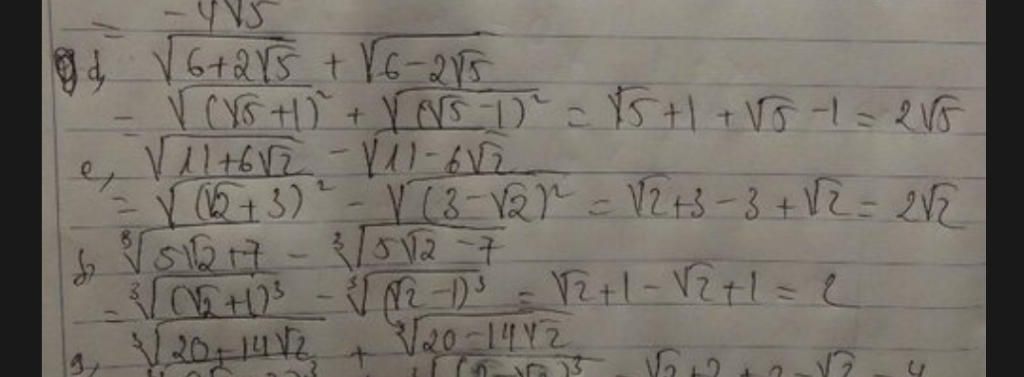 = -4√5
d, √(6+2√5) + √(6-2√5)
= √((√5+1)²) + √((√5-1)²) = √5+1+√5-1 = 2√5
e, √(11+6√2) - √(11-6√2)
= √((√2+3)²) - √((3-√2)²) = √2+3-3+√2 = 2√2
f, ∛(5√2+7) - ∛(5√2-7)
= ∛((√2+1)³) - ∛((√2-1)³) = √2+1-√2+1 = 2
g, ∛(20+14√2) + ∛(20-14√2)